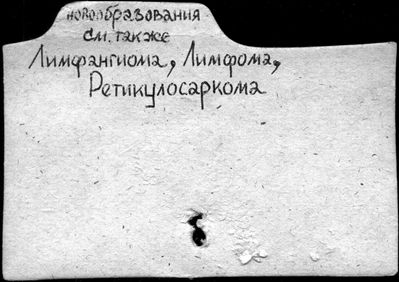 новообразования
см. также
Лимфангиома, Лимфома,
Ретикулосаркома